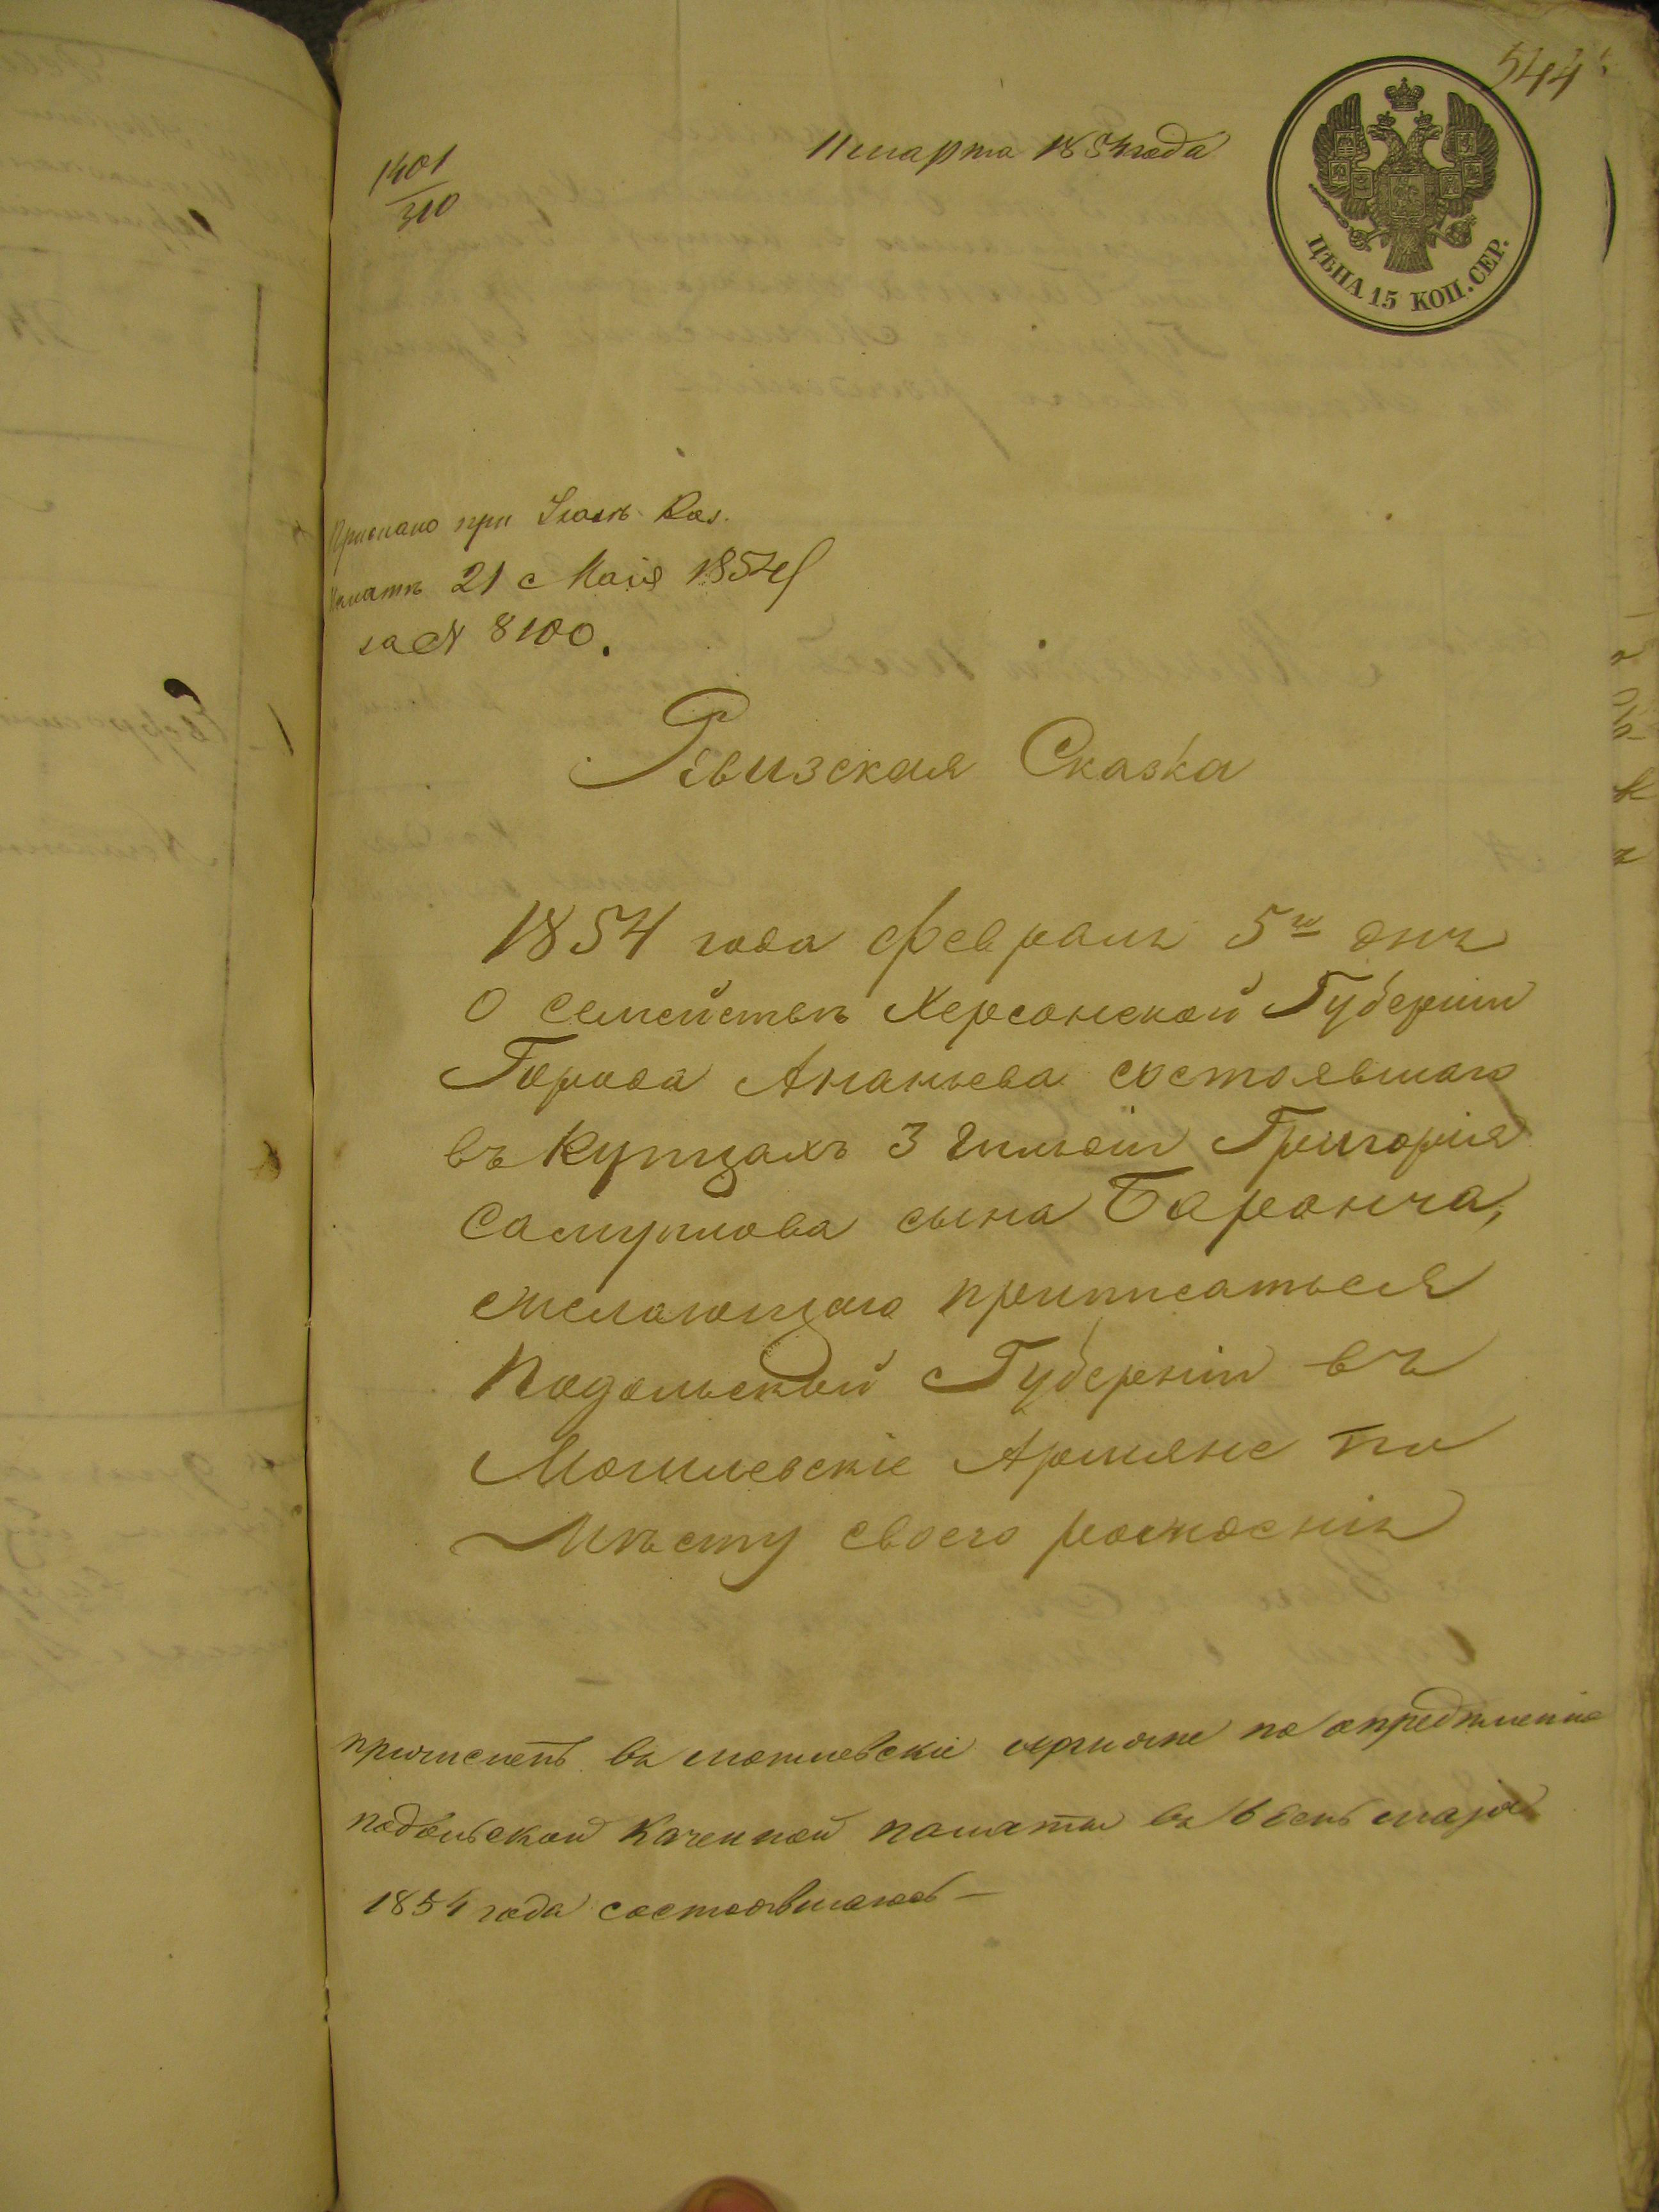 544
11 марта 1854 года
1401
310
ЦѢНА 15 КОП. СЕР.
Прислано при Указѣ Каз.
Палаты 21 с Маія 1854
за № 8100.
Ревизская Сказка
1854 года февраля 5го дня
О семействѣ Херсонской Губерніи
Города Ананьева состоявшаго
въ Купцахъ 3 Гильдіи Григорія
Самуилова сына Баронча,
желающаго приписаться
Подольской Губерніи въ
Могилевскіе Армяне по
Мѣсту своего рожденія
причисленъ въ могилевскіе армяне по опредѣленію
подольской казенной палаты въ 6 день маія
1854 года состоявшагося —